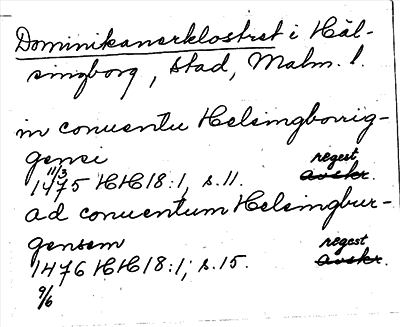 Dominikanerklostret i Häl-
singborg, stad, Malm. l.
in conventu Helsingborrig-
gensi
11/3 regest
1475 HH18:1, s.11. avskr.
ad conuentum Helsingbur-
gensem regest
1476 HH18:1, s.15. avskr.
9/6